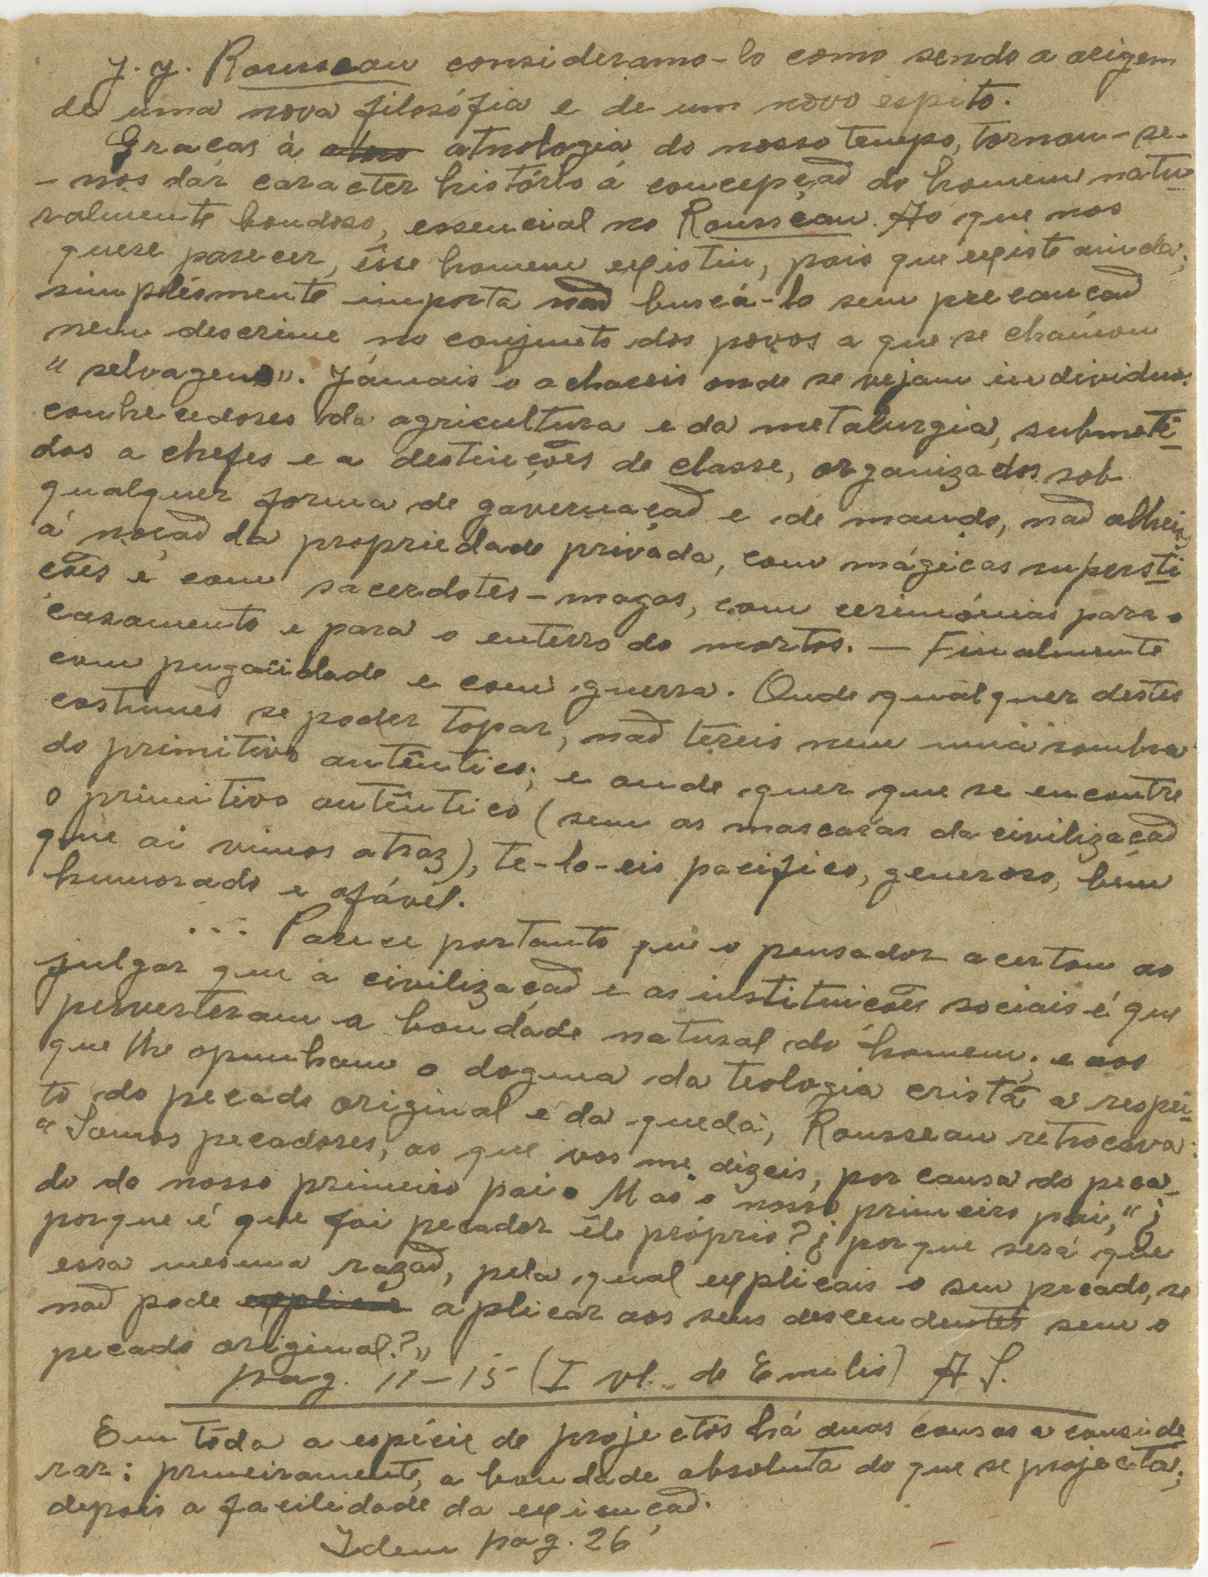 J. J. Rousseau consideramo-lo como sendo a origem
de uma nova filosófia e de um novo espito.
Graças à etno atnologia do nosso tempo, tornou-se-
-nos dár caracter histórico á concepçaõ do homem natu
ralmente bondoso, essencial no Rousseau. Ao que nos
quere parecer, êsse homem existiu, pois que existe ainda;
simplesmente importa naõ buscá-lo sem precauçaõ
nem descrime no conjunto dos povos a que se chamou
"selvagens". Jámais o achareis onde se vejam individuos
conhecedores da agricultura e da metalurgia, submeti-
dos a chefes e a destinções de classe, organizados sob
qualquer forma de governaçaõ e de mando, naõ alheios
á noçaõ da propriedade privada, com mágicas supersti
ções e com sacerdotes-magos, com cerimónias para o
casamento e para o enterro do mortos. — Finalmente
com pugacidade e com guerra. Onde qualquer destes
costumes se poder topar, naõ tereis nem uma sombra
do primitivo autêntico; e onde quer que se encontre
o primitivo autêntico (sem as mascaras da civilizaçaõ
que ai vimos atraz), te-lo-eis pacifico, generoso, bém
humorado e afável.
... Parece portanto que o pensador acertou ao
julgar que a civilizaçaõ e as instituições sociais é que
perverteram a bondade natural do homem; e aos
que lhe opunham o dogma da teologia cristã a respei-
to do pecado original e da queda, Rousseau retrocava:
"Somos pecadores, ao que vos me dizeis, por causa do peca-
do do nosso primeiro pai. Mas o nosso primeiro pai," ¿
porque é que foi pecador êle próprio? ¿ porque será que
essa mesma razaõ, pela qual explicais o seu pecado, se
naõ pode explicar aplicar aos seus descendentes sem o
pecado original?"
pag. 11-15 (I vl. de Emilio) A. S.
Em tôda a espécie de projectos há duas cousas a conside
rar: primeiramente, a bondade absoluta do que se projecta;
depois a facilidade da execuçaõ.
Idem pag. 26